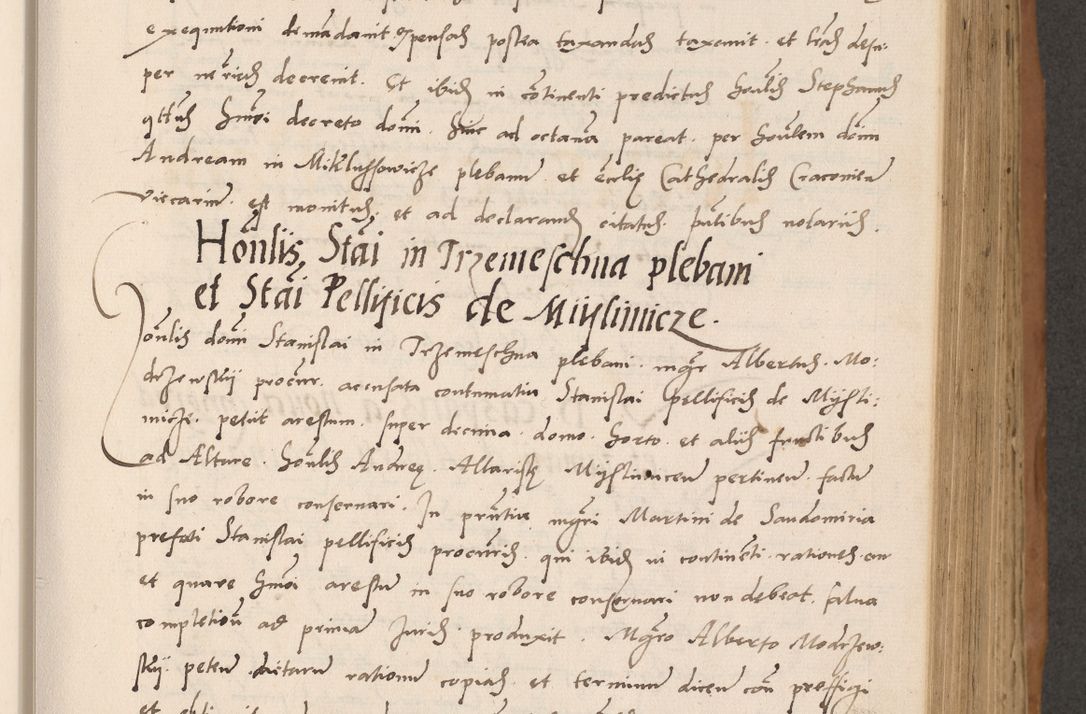 exequutioni demãdavit expensas postea taxandas taxavit et lrãs desu:
per necrias decrevit. Et ibid in cõtinenti predictus hoñlis Stephanus
hmõi decreto domi. hinc ad octava pareat. per hoñlem dom
Andream in Miklussowicze plebanu et ecclie Cathedralis Cracovien
viccariu est monitus et ad declarand citatus pñtibus notariis.
Honlis Stai in Trzemeschna plebani
et Stai Pellificis de Miislimicze.
Honlis domi Stanislai in Trzemeschna plebani mgr Albertus Mo:
drzewskij procur. acusata contumatia Stanislai pellificis de Myssli:
micze petiit arestum super decima domo horto et aliis fructibus
ad Altare honlis Andreę Altaristę Myslimicen pertinen factu
in suo robore conservari. In pñtia mgri Martini de Sandomiria
prefati Stanislai pellificis procuris qui ibid in continẽti rationes an
et quare hmõi arestu in suo robore conservari non debeat salva
completioñ ad prima Juris produxit. Mgro Alberto Modrzew:
skij peten dictaru rationu copias et terminu dicen con prefigi